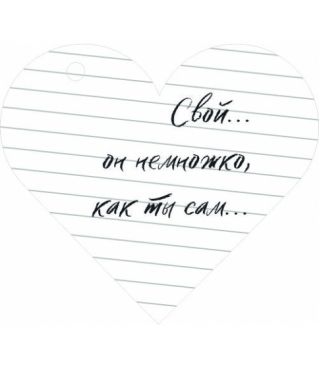 Свой...
он немножко,
как ты сам...